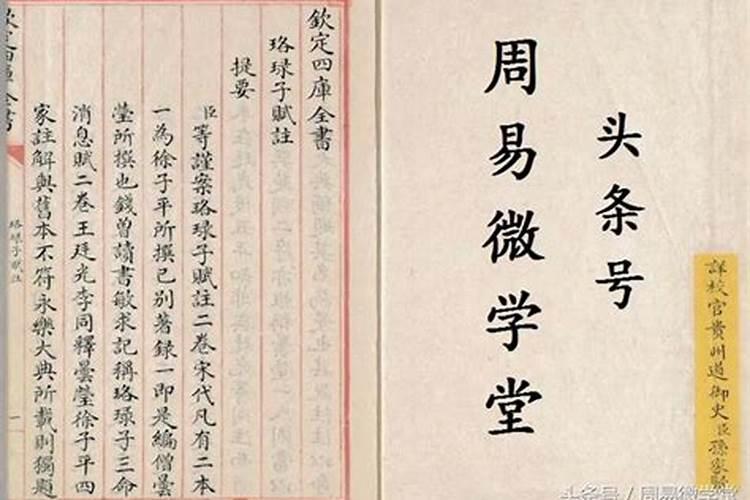 詳校官貴州道御史臣孫家
头条号
周易微学堂
欽定四庫全書
珞琭子賦註
提要
臣等謹案珞琭子賦註二卷宋代凡有二本
一為徐子平所撰已别著録一即是編僧曇
瑩所撰也錢曾讀書敏求記稱珞琭子三命
消息賦二卷王廷光李同釋曇瑩徐子平四
家註解與舊本不符永樂大典所載則獨題
欽定四庫全書
珞琭子賦註
一
头条号 / 周易微学堂